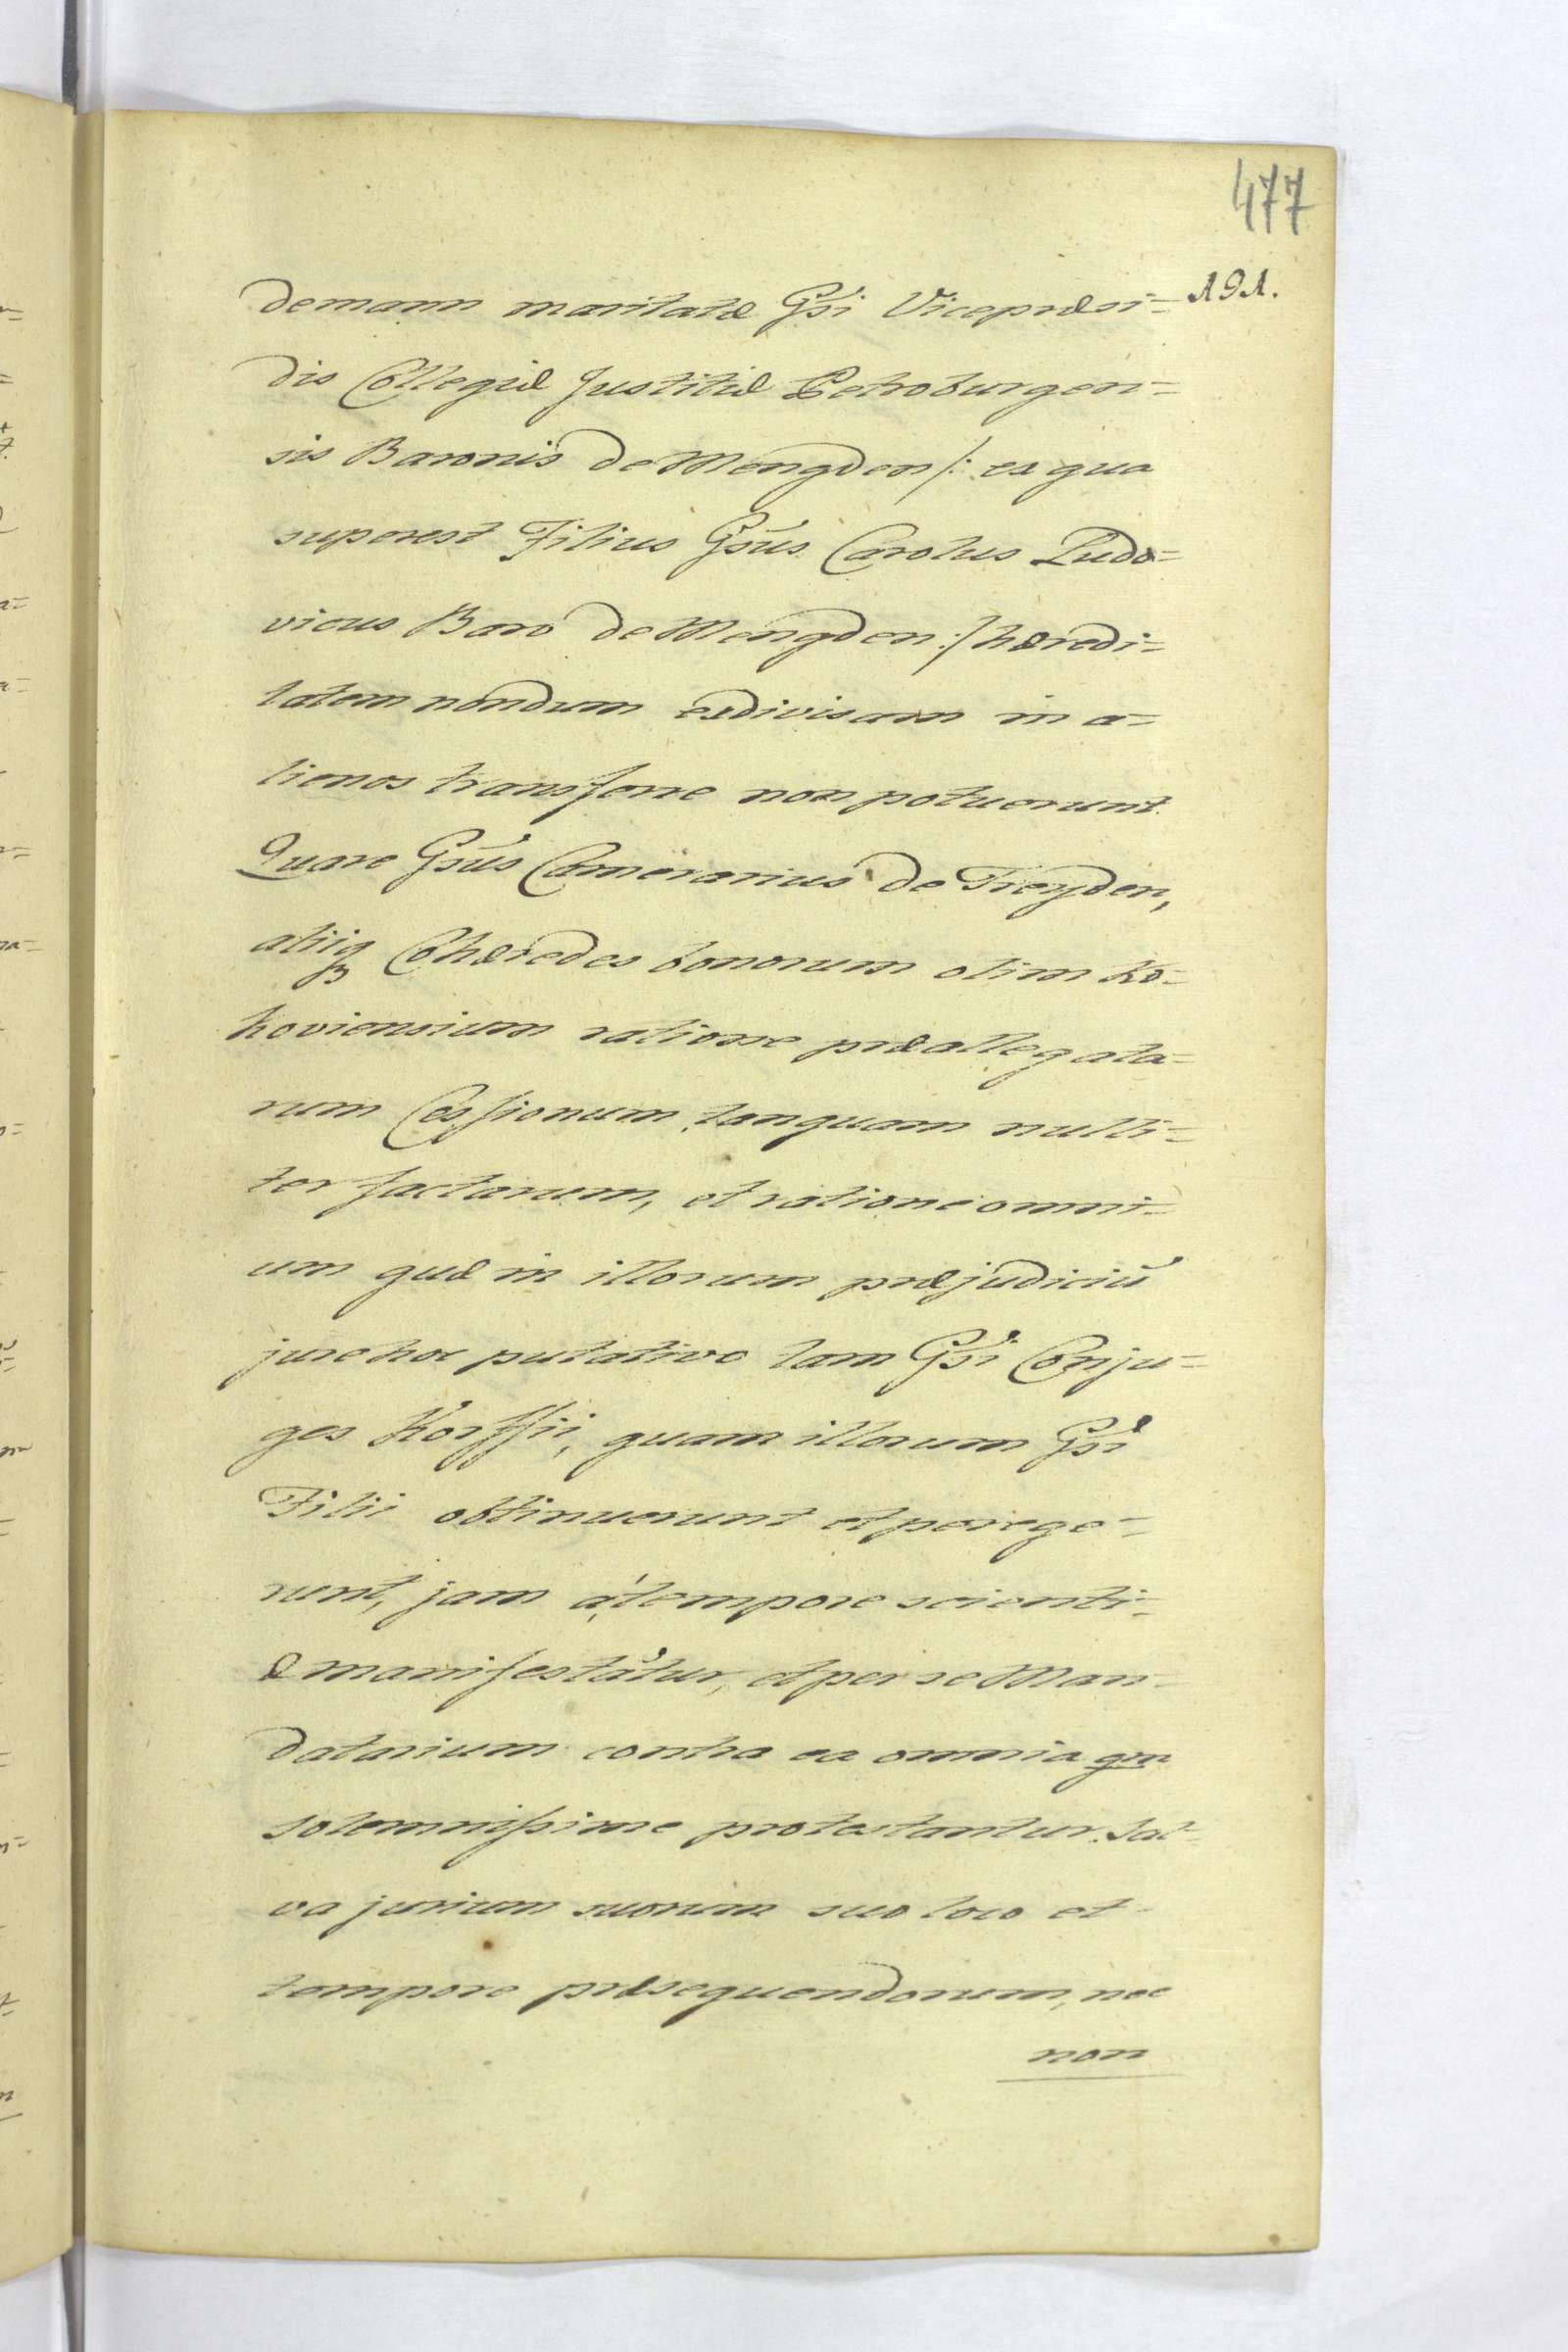 477
191.
demann maritatæ Gsi Vicepræsi=
dis Collegiæ Justitiæ Petroburgen=
sis Baronis de Mengden /: ex qua
superest Filius Gsus Carolus Ludo=
vicus Baro de Mengden :/ hæredi=
tatem nondum exdivisam in a=
lienos transferre non potuerunt.
Quare Gsus Camerarius de Treyden,
aliiq Cohæredes bonorum olim Ko=
hoviensium ratione præallegata=
rum Cessionum, tanquam nulli=
ter factarum, et ratione omni=
um quæ in illorum præjudiciu
jure hoc putativo tam Gsi Conju=
ges Korffii, quam illorum Gsi
Filii obtinuerunt et perege=
runt, jam à tempore scienti=
æ manifestatur, et per se Man=
datarium contra ea omnia qm
solemnissime protestantur. Sal=
va jurium suorum suo loco et
tempore præsequendorum, nec
non